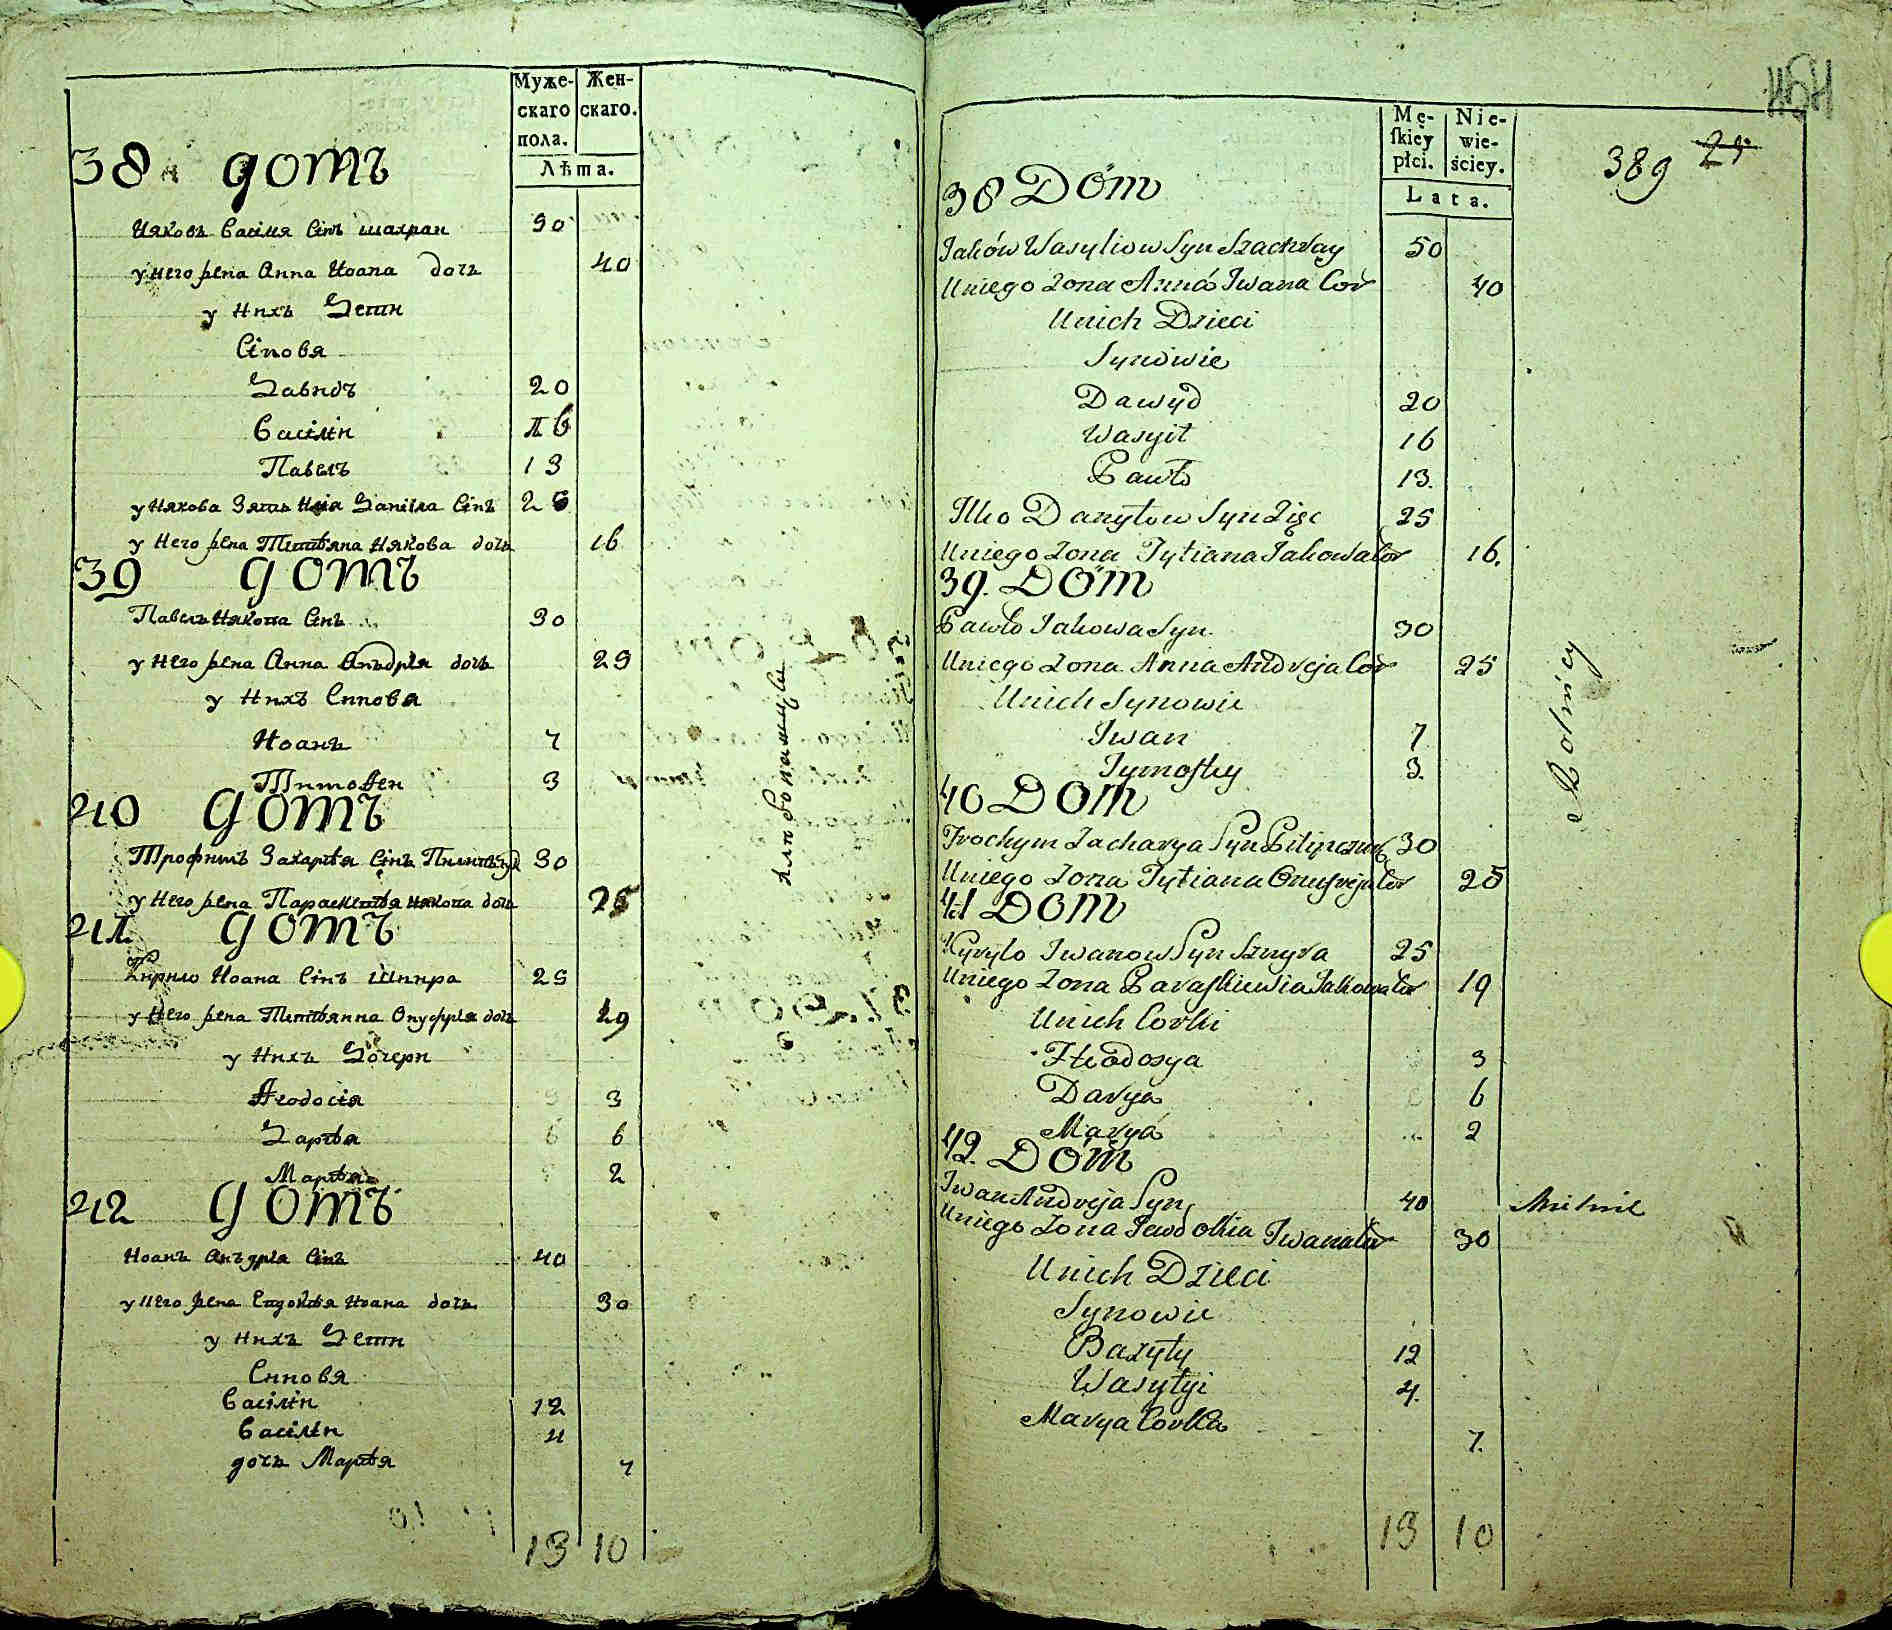 Муже- Жен-
скаго скаго.
пола.
Лѣта.
38 домъ
Няковъ Василя Синъ шахрай 50
у него жена Анна Иоана дочь 40
у Нихъ Дети
Синовя
Давидъ 20
Василий 16
Павелъ 13
у Иякова Зять Илія Даніила Синъ 25
у Него жена Татіяна Иякова дочь 16
39 домъ
Павелъ Иякова Синъ 30
у Него жена Анна Андрія дочь 25
у Нихъ Синовя
Иоанъ 7
Тимофей 3
40 домъ
Трофимъ Захарія Синъ 30
у Него жена Параскевія Иякова дочь 25
41 домъ
Кирило Иоана Синъ Шпира 25
у Него жена Татіянна Онуфрія дочь 19
у Нихъ Дочери
Ѳеодосія 3
Дарія 6
Марія 2
42 домъ
Иоанъ Андрія Синъ 40
у Него жена Евдокія Иоана дочь 30
у нихъ Дети
Синовя
Василій 12
Василій 4
дочь Марія 7
13 10
Mę- Nie-
skiey wie-
płci. ściey.
Lata.
389 25
38 Dóm
Jaków Wasyliow Syn Szachray 50
Uniego Zona Anna Jwana Cor 40
Unich Dzieci
Synowie
Dawyd 20
Wasyil 16
Pawło 13.
Ilko Danyłow Syn Zięc 25
Uniego Zona Tytiana Jakowa Cor 16.
39. Dóm
Pawło Jakowa Syn 30
Uniego Zona Anna Andreja Cor 25
Unich Synowie
Jwan 7
Tymofky 3.
40 Dóm
Trochym Zacharya Syn 30
Uniego Zona Tytiana Onufreja Cor 25
41 Dóm
Kyryło Jwanow Syn Szpyra 25
Uniego Zona Paraskiewia Jakowa Cor 19
Unich Corki
Fteodosya 3
Darya 6
Marya 2
42. Dóm
Jwan Andreja Syn 40
Uniego Zona Jewdokia Jwana Cor 30
Unich Dzieci
Synowie
Bazyly 12
Wasylyi 4.
Marya Corka 7.
13 10
Rolnicy